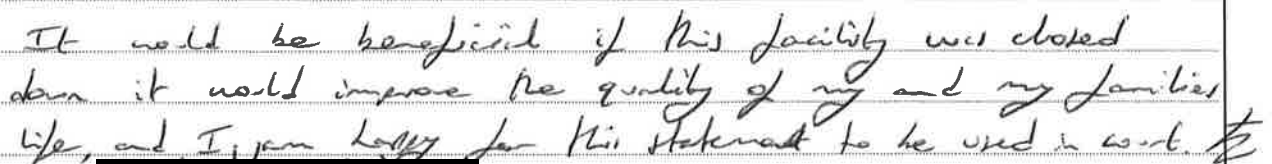 It would be beneficial if this facility was closed
down it would improve the quality of my and my families
life, and I, am happy for this statement to be used in court.